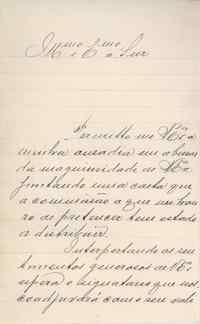 Illmo e Exmo Snr
Permitte me V. Exa
minha ousadia em abusar
da magnimidade de V. Exa
juntando uma carta que
a commissão a que me honro
de pertencer tem estado
a distribuir.
Interpretando os sen
timentos generosos de V. Exa
espera o signatario que nos
coadjuvará com o seu vali